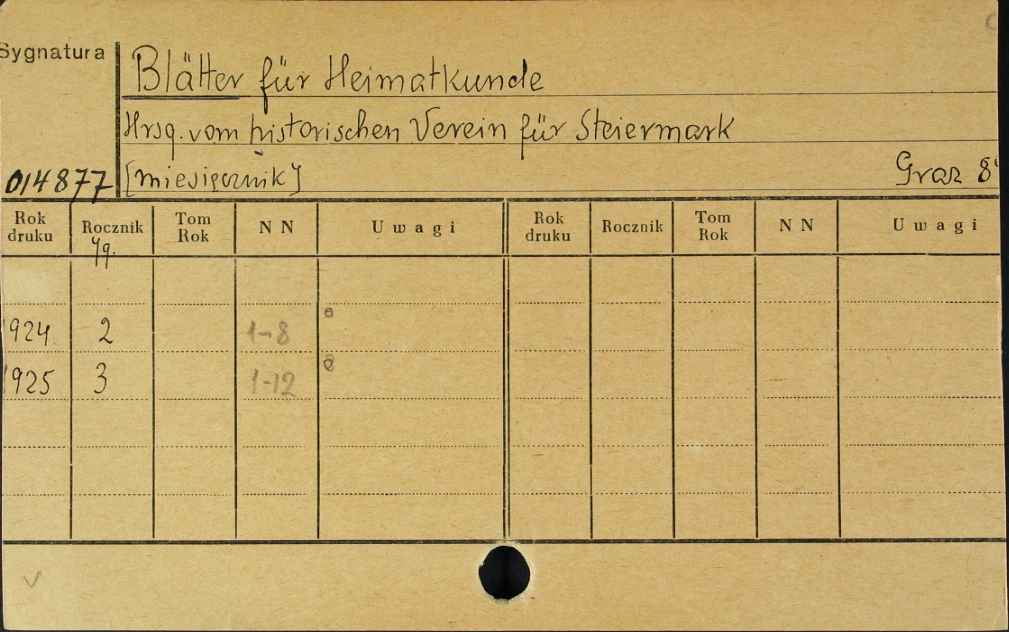 Sygnatura
Blätter für Heimatkunde
Hrsg. vom historischen Verein für Steiermark
014877 [miesięcznik] Graz 8°
Rok druku Rocznik Tom Rok NN Uwagi Rok druku Rocznik Tom Rok NN Uwagi
Jg.
1924 2 1-8
1925 3 1-12